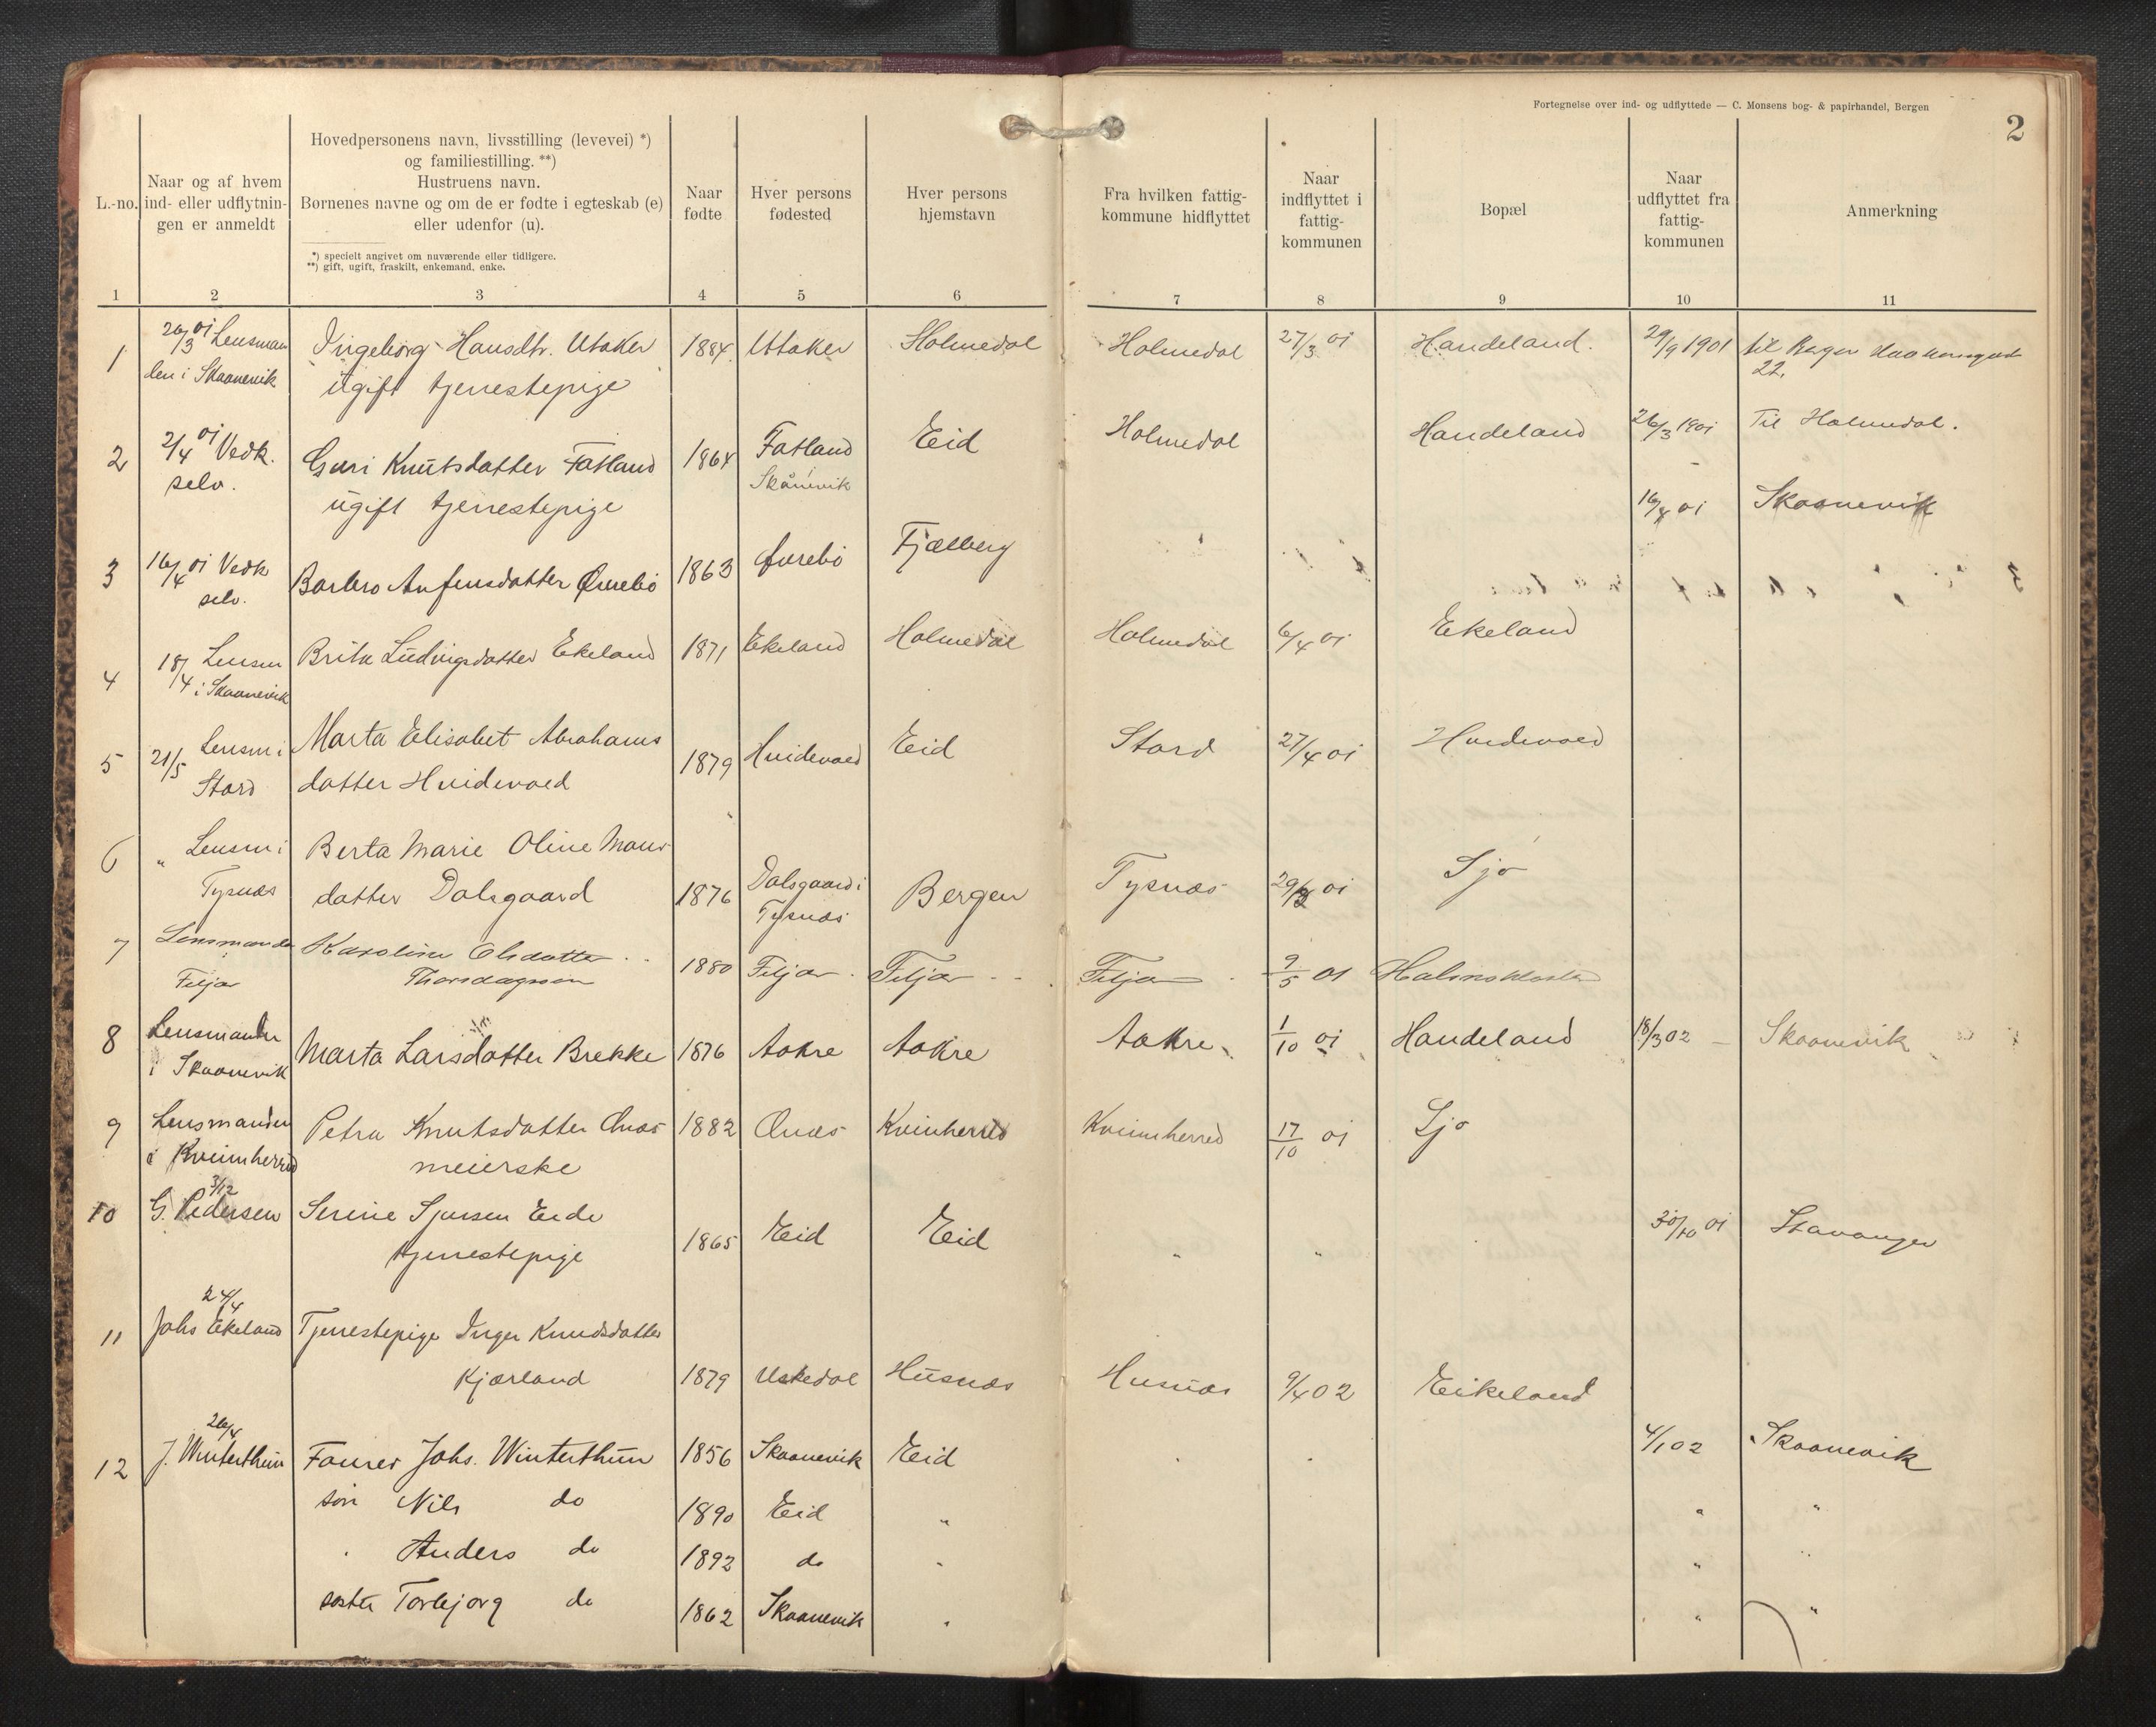 Fortegnelse over ind- og udflyttede — C. Monsens bog- & papirhandel, Bergen
2
L.-no.
Naar og af hvem
ind- eller udflytnin-
gen er anmeldt
Hovedpersonens navn, livsstilling (levevei) *)
og familiestilling. **)
Hustruens navn.
Børnenes navne og om de er fødte i egteskab (e)
eller udenfor (u).
*) specielt angivet om nuværende eller tidligere.
**) gift, ugift, fraskilt, enkemand, enke.
Naar
fødte
Hver persons
fødested
Hver persons
hjemstavn
Fra hvilken fattig-
kommune hidflyttet
Naar
indflyttet i
fattig-
kommunen
Bopæl
Naar
udflyttet fra
fattig-
kommunen
Anmerkning
1 2 3 4 5 6 7 8 9 10 11
1 26/3 01 Lensman Ingeborg Hansdtr. Utaker 1884. Uttaker Holmedal Holmedal 27/3 01 Handeland. 29/9 1901 til
den i Skaanevik ugift tjenestepige 22.
2 2/4 01 Vedk. Guri Knutsdatter Fatland 1864 Fatland Eid Holmedal Handeland 26/3 1901 Til Holmedal.
selv. ugift tjenestepige Skånevik
16/4 01 Skaanevik
3 16/4 01 Vedk Barbro Anfinsdatter 1863 Fjælberg
selv.
4 18/4 Lensm Brita Ludvigsdatter Ekeland 1871 Ekeland Holmedal Holmedal 6/4 01 Ekeland
i Skaanevik
5 21/5 Lensm i Marta Elisabet Abrahams 1879 Huidevoed Eid Stord 27/4 01 Huidevoed
Stord datter Huidevoed
6 " Lensm i Berta Marie Oline Mons
Tysnæs datter Dalsgaard 1876 Dalsgaard i Bergen Tysnæs 29/3 01 Sjo
Tysnæs
7 Lensmanden Karoline Olsdatter 1880 Fitjar Fitjar Fitjar 9/5 01
Fitjar
8 Lensmanden Marta Larsdatter Brekke 1876 Aakre Aakre Aakre 1/10 01 Handeland 18/3 02 — Skaanevik
i Skaanevik
9 Lensmanden Petra Knutsdatter Ønæs 1882 Ønæs Kvinherred Kvinnherred 17/10 01 Sjo
i Kvinnherred meierske
3/12
10 G. Pedersen Serine Sjursen Eide 1865 Eid Eid " " 30/10 01 Stavanger
tjenestepige
24/4
11 Johs Ekeland Tjenestepige Inger Knudsdatter
Kjærland 1879 Uskedal Husnæs Husnæs 9/4 02 Eikeland
26/4
12 J. Winterthun Faurer Johs. Winterthun 1856 Skaanevik Eid 4/1 02 Skaanevik
søn Nils do 1890 Eid " " "
" Anders do 1892 do " " "
søster Torbjorg do 1862 Skaanevik " " "